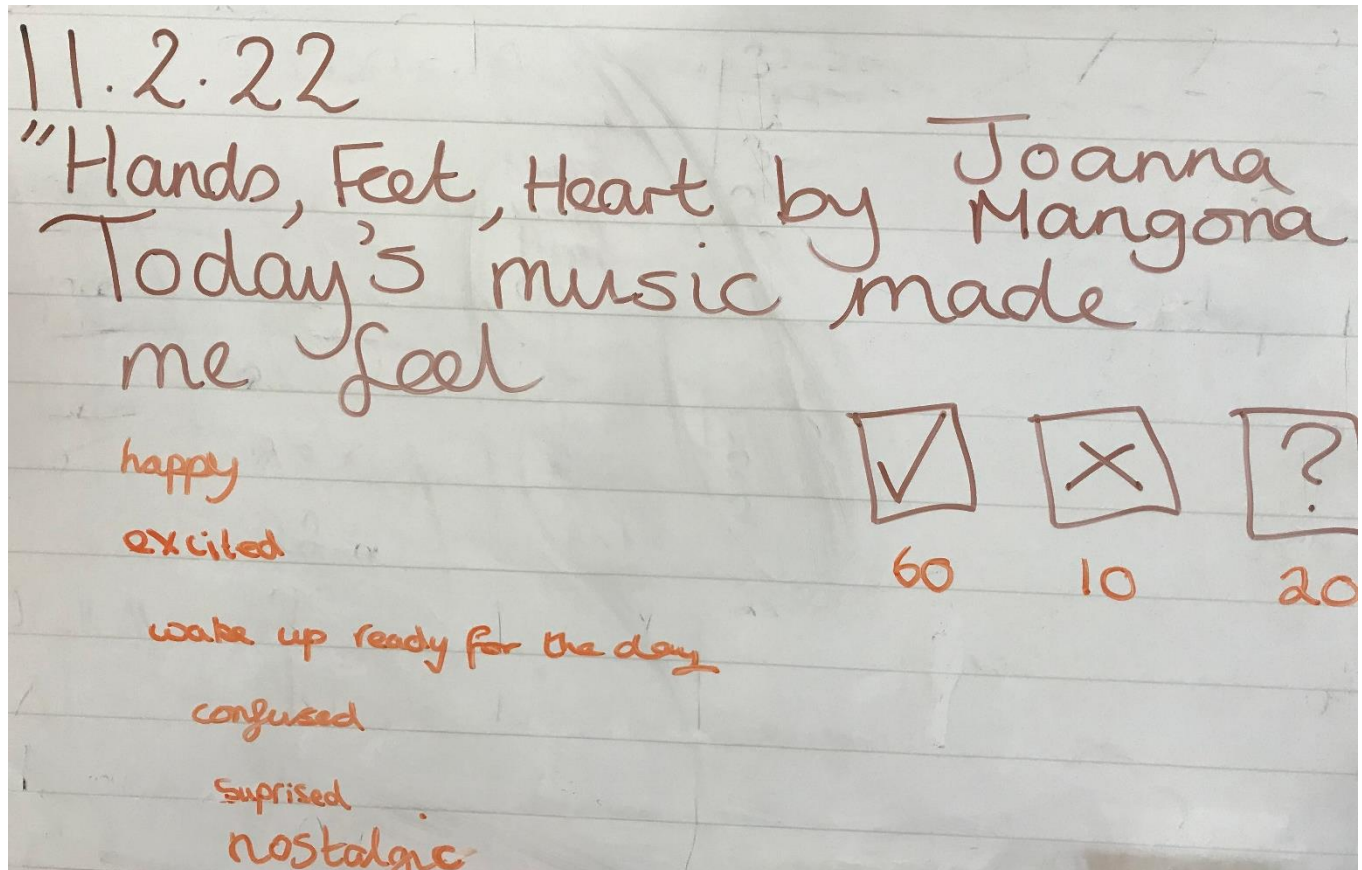 11.2.22
"Hands, Feet, Heart by Joanna
Mangona
Today's music made
me feel
happy
excited
wake up ready for the day
confused
suprised
nostalgic
✓ × ?
60 10 20